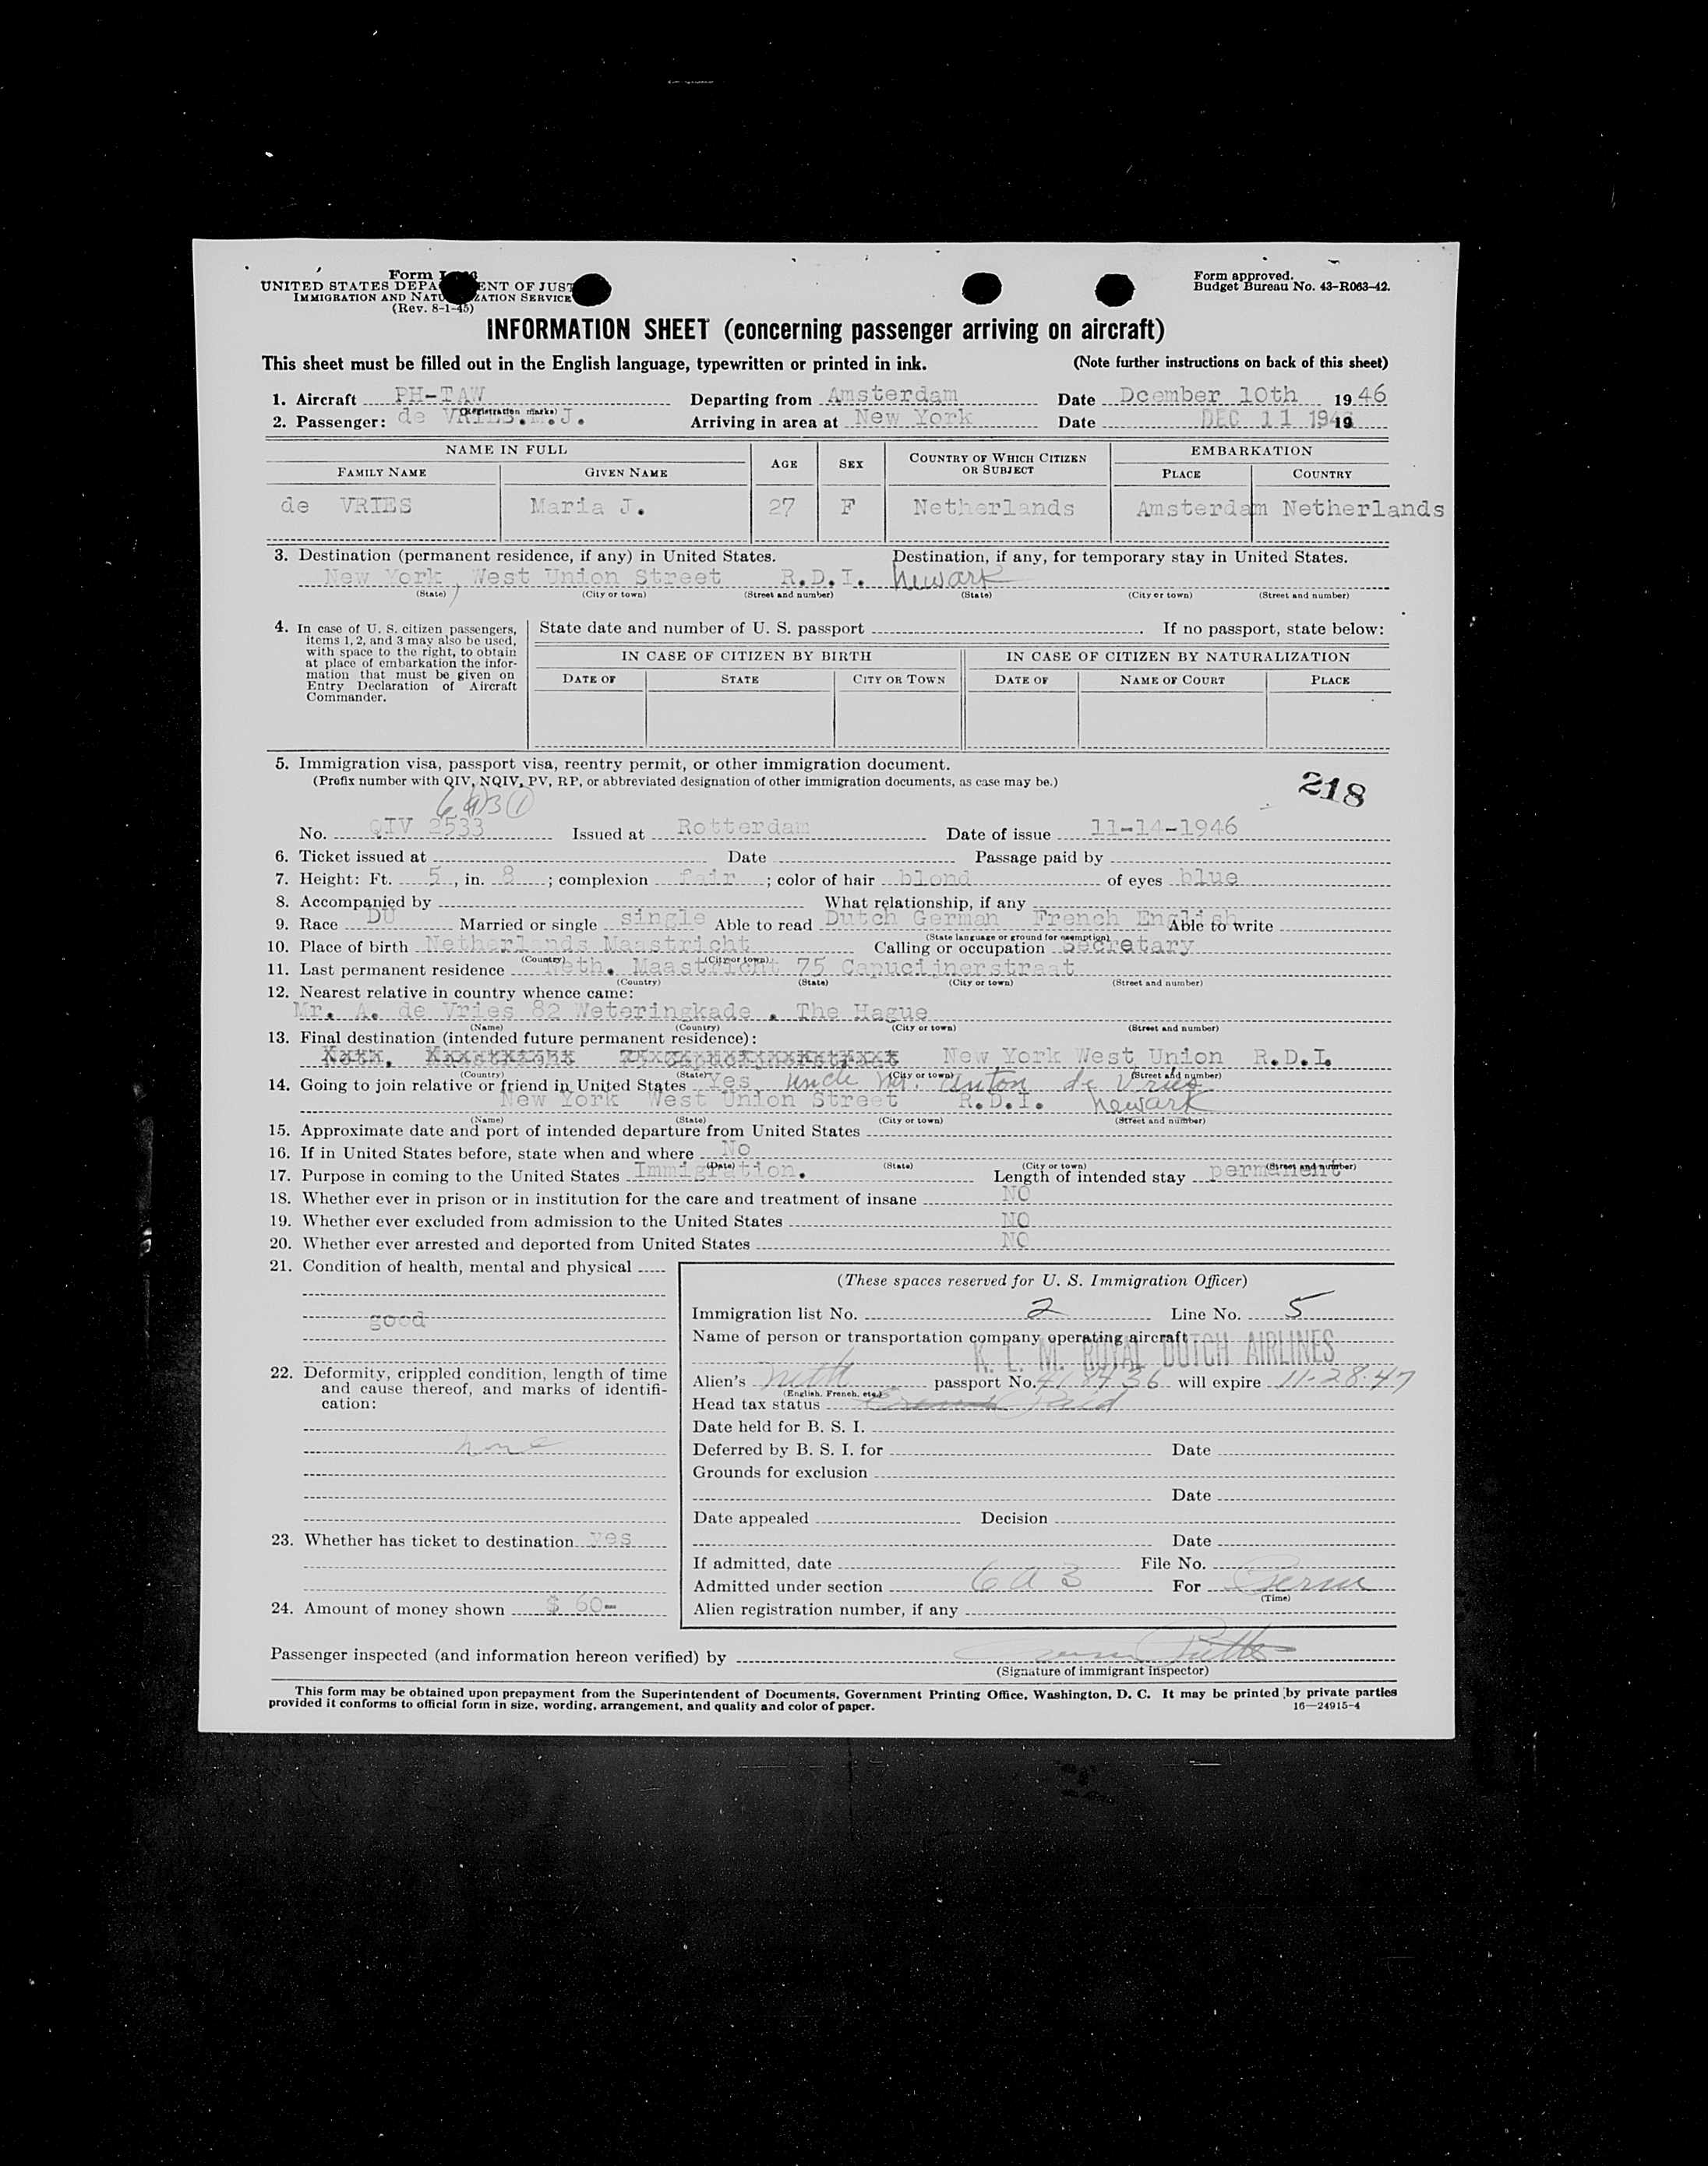 Form I-
UNITED STATES DEPA ENT OF JUST
IMMIGRATION AND NATU ZATION SERVICE
(Rev. 8-1-45)
Form approved.
Budget Bureau No. 43-R063-42.
INFORMATION SHEET (concerning passenger arriving on aircraft)
This sheet must be filled out in the English language, typewritten or printed in ink. (Note further instructions on back of this sheet)
1. Aircraft PH-TAW Departing from Amsterdam Date Dcember 10th 1946
(Registration marks)
2. Passenger: de VRIES.M.J. Arriving in area at New York Date DEC 11 1946 19
NAME IN FULL AGE SEX COUNTRY OF WHICH CITIZEN OR SUBJECT EMBARKATION
FAMILY NAME GIVEN NAME PLACE COUNTRY
de VRIES Maria J. 27 F Netherlands Amsterdam Netherlands
3. Destination (permanent residence, if any) in United States. Destination, if any, for temporary stay in United States.
New York, West Union Street R.D.I. Newark
(State) (City or town) (Street and number) (State) (City or town) (Street and number)
4. In case of U. S. citizen passengers, items 1, 2, and 3 may also be used, with space to the right, to obtain at place of embarkation the information that must be given on Entry Declaration of Aircraft Commander.
State date and number of U. S. passport . If no passport, state below:
IN CASE OF CITIZEN BY BIRTH IN CASE OF CITIZEN BY NATURALIZATION
DATE OF STATE CITY OR TOWN DATE OF NAME OF COURT PLACE
5. Immigration visa, passport visa, reentry permit, or other immigration document.
(Prefix number with QIV, NQIV, PV, RP, or abbreviated designation of other immigration documents, as case may be.)
218
6(a)3 (1)
No. QIV 2533 Issued at Rotterdam Date of issue 11-14-1946
6. Ticket issued at Date Passage paid by
7. Height: Ft. 5, in. 8; complexion fair; color of hair blond of eyes blue
8. Accompanied by What relationship, if any
9. Race DU Married or single single Able to read Dutch German French English Able to write
(State language or ground for exemption)
10. Place of birth Netherlands Maastricht Calling or occupation Secretary
(Country) (City or town)
11. Last permanent residence Neth. Maastricht 75 Capucijnerstraat
(Country) (State) (City or town) (Street and number)
12. Nearest relative in country whence came:
Mr. A. de Vries 82 Weteringkade . The Hague
(Name) (Country) (City or town) (Street and number)
13. Final destination (intended future permanent residence):
New York West Union R.D.I.
(Country) (State) (City or town) (Street and number)
14. Going to join relative or friend in United States Yes, Uncle Mr. Anton de Vries
New York West Union Street R.D.I. Newark
(Name) (State) (City or town) (Street and number)
15. Approximate date and port of intended departure from United States
16. If in United States before, state when and where No
(Date) (State) (City or town) (Street and number)
17. Purpose in coming to the United States Immigration. Length of intended stay permanent
18. Whether ever in prison or in institution for the care and treatment of insane NO
19. Whether ever excluded from admission to the United States NO
20. Whether ever arrested and deported from United States NO
21. Condition of health, mental and physical
good
22. Deformity, crippled condition, length of time and cause thereof, and marks of identification:
none
23. Whether has ticket to destination yes
24. Amount of money shown $ 60-
(These spaces reserved for U. S. Immigration Officer)
Immigration list No. 2 Line No. 5
Name of person or transportation company operating aircraft
K. L. M. ROYAL DUTCH AIRLINES
Alien's Neth passport No. 418436 will expire 11-28-47
(English, French, etc.)
Head tax status Paid
Date held for B. S. I.
Deferred by B. S. I. for Date
Grounds for exclusion
Date
Date appealed Decision
Date
If admitted, date File No.
Admitted under section 6 a 3 For Perm
(Time)
Alien registration number, if any
Passenger inspected (and information hereon verified) by
(Signature of immigrant inspector)
This form may be obtained upon prepayment from the Superintendent of Documents, Government Printing Office, Washington, D. C. It may be printed by private parties
provided it conforms to official form in size, wording, arrangement, and quality and color of paper. 16—24915-4